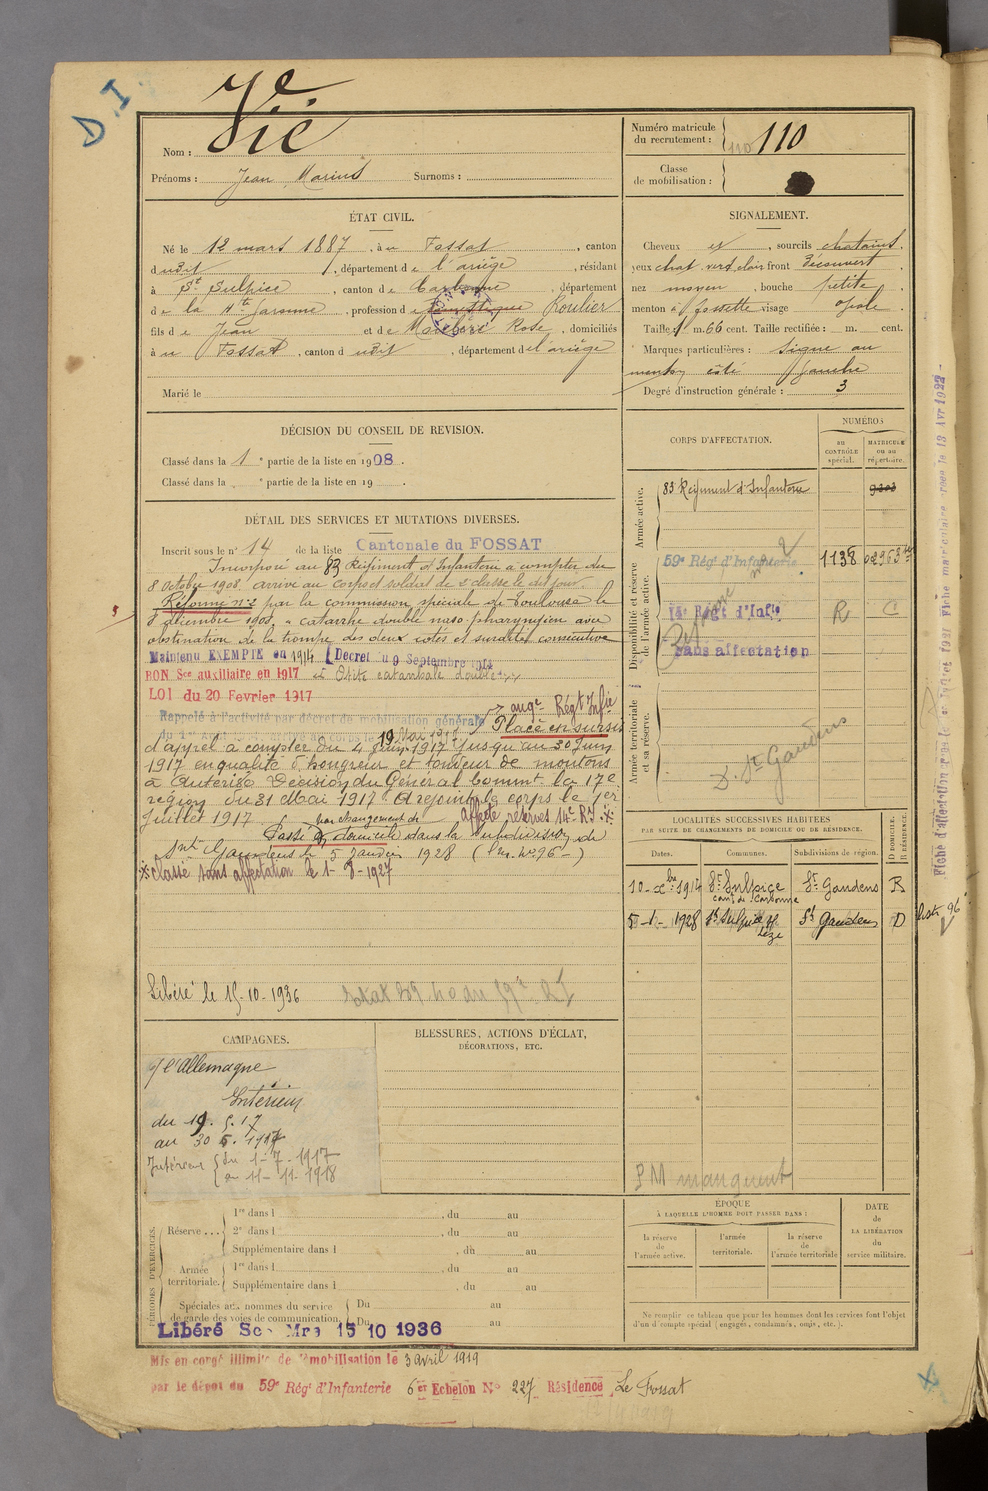 D.I
Nom : Vié
Prénoms : Jean Marius Surnoms :
Numéro matricule du recrutement : 110 110
Classe de mobilisation :
ÉTAT CIVIL.
Né le 12 mars 1887, à u Fossat, canton
dudit, département de l'ariège, résidant
à St Sulpice, canton de Carbonne, département
de la Hte Garonne, profession de Roulier
fils de Jean et de Rose, domiciliés
à u Fossat, canton dudit, département de l'ariège
Marié le
SIGNALEMENT.
Cheveux et, sourcils chatains,
yeux chat. vert clair front découvert
nez moyen, bouche petite,
menton à fossette visage ovale.
Taille 1 m. 66 cent. Taille rectifiée : m. cent.
Marques particulières : signe au
menton côté gauche
Degré d'instruction générale : 3
DÉCISION DU CONSEIL DE REVISION.
Classé dans la 1e partie de la liste en 1908.
Classé dans la e partie de la liste en 19 .
DÉTAIL DES SERVICES ET MUTATIONS DIVERSES.
Inscrit sous le n° 14 de la liste Cantonale du FOSSAT
Incorporé au 83 Régiment d'Infanterie à compter du
8 Octobre 1908, arrivé au corps et soldat de 2e classe le dit jour.
Réformé n° 2 par la commission spéciale de Toulouse le
8 décembre 1908, « catarrhe double naso-pharyngien avec
obstination de la trompe des deux cotés et surdité consécutive
Maintenu EXEMPTÉ en 1914 (Decret du 9 Septembre 1914
BON Sce auxiliaire en 1917 Otite catarrhale double
LOI du 20 Fevrier 1917
Rappelé à l'activité par décret de mobilisation générale
19 Mai
Régt Infie
Placé en sursis
d'appel à compter du 4 Juin 1917 jusqu'au 30 Juin
1917 en qualité d'hongreur et tondeur de moutons
à Auterive Décision du Général Commt la 17e
région du 31 Mai 1917. A rejoint le corps le 1er
Juillet 1917. Affecté réserves 14e RI
Passé par changement de domicile dans la subdivision de
Saint Gaudens le 5 Janvier 1928 ( N° 96-)
Classé sans affectation le 1-8-1927
Libéré le 15-10-1936
CORPS D'AFFECTATION.
NUMÉROS
au CONTRÔLE spécial.
MATRICULE ou au répertoire.
Armée active.
83 Régiment d'Infanterie
Disponibilité et réserve de l'armée active.
59e Régt d'Infanterie 1138
14e Régt d'Infie
Sans affectation
Armée territoriale et sa réserve.
D. St Gaudens
LOCALITÉS SUCCESSIVES HABITÉES
PAR SUITE DE CHANGEMENTS DE DOMICILE OU DE RÉSIDENCE.
D DOMICILE. R RÉSIDENCE.
Dates. Communes. Subdivisions de région.
10-Xbre-1914 St Sulpice cant de Carbonne St Gaudens R
5-1-1928 St Sulpice Lèze St Gaudens D
96
PM manquent
CAMPAGNES.
c/ l'Allemagne
Intérieur
du 19.5.17
au 30 1917
Intérieur du 1-7-1917
au 11-11-1918
BLESSURES, ACTIONS D'ÉCLAT,
DÉCORATIONS, ETC.
PÉRIODES D'EXERCICES.
Réserve... 1re dans l , du au
2e dans l , du au
Supplémentaire dans l , du au
Armée territoriale. 1re dans l , du au
Supplémentaire dans l , du au
Spéciales aux hommes du service de garde des voies de communication. Du au
Du au
Libéré Sce Mre 15 10 1936
EPOQUE
À LAQUELLE L'HOMME DOIT PASSER DANS :
la réserve de l'armée active.
l'armée territoriale.
la réserve de l'armée territoriale
DATE de LA LIBÉRATION du service militaire.
Ne remplir ce tableau que pour les hommes dont les services font l'objet
d'un décompte spécial (engagés, condamnés, omis, etc.).
Mis en congé illimité de démobilisation le 3 avril 1919
par le dépôt du 59e Régt d'Infanterie 6er Echelon N° 227 Résidence Le Fossat